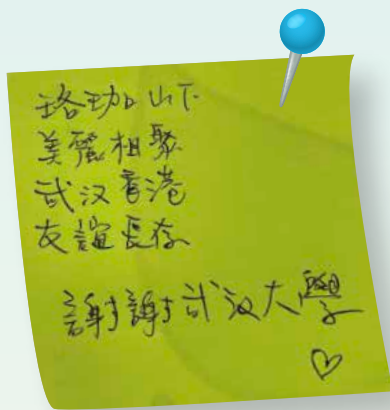 珞珈山下
美麗相聚
武汉香港
友誼長存
謝謝武汉大學
♡